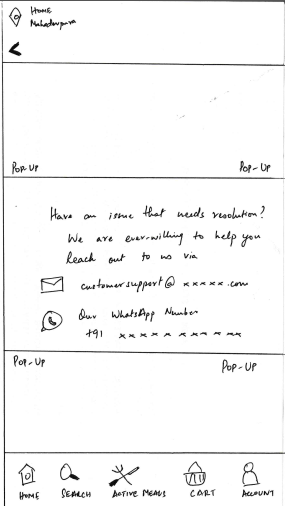 HOME
Mahadevpura
POP-UP POP-UP
Have an issue that needs resolution?
We are ever-willing to help you
Reach out to us via
customersupport@xxxxx.com
Our WhatsApp Number
+91 xxxxx xxxxx
POP-UP POP-UP
HOME SEARCH ACTIVE MEALS CART ACCOUNT